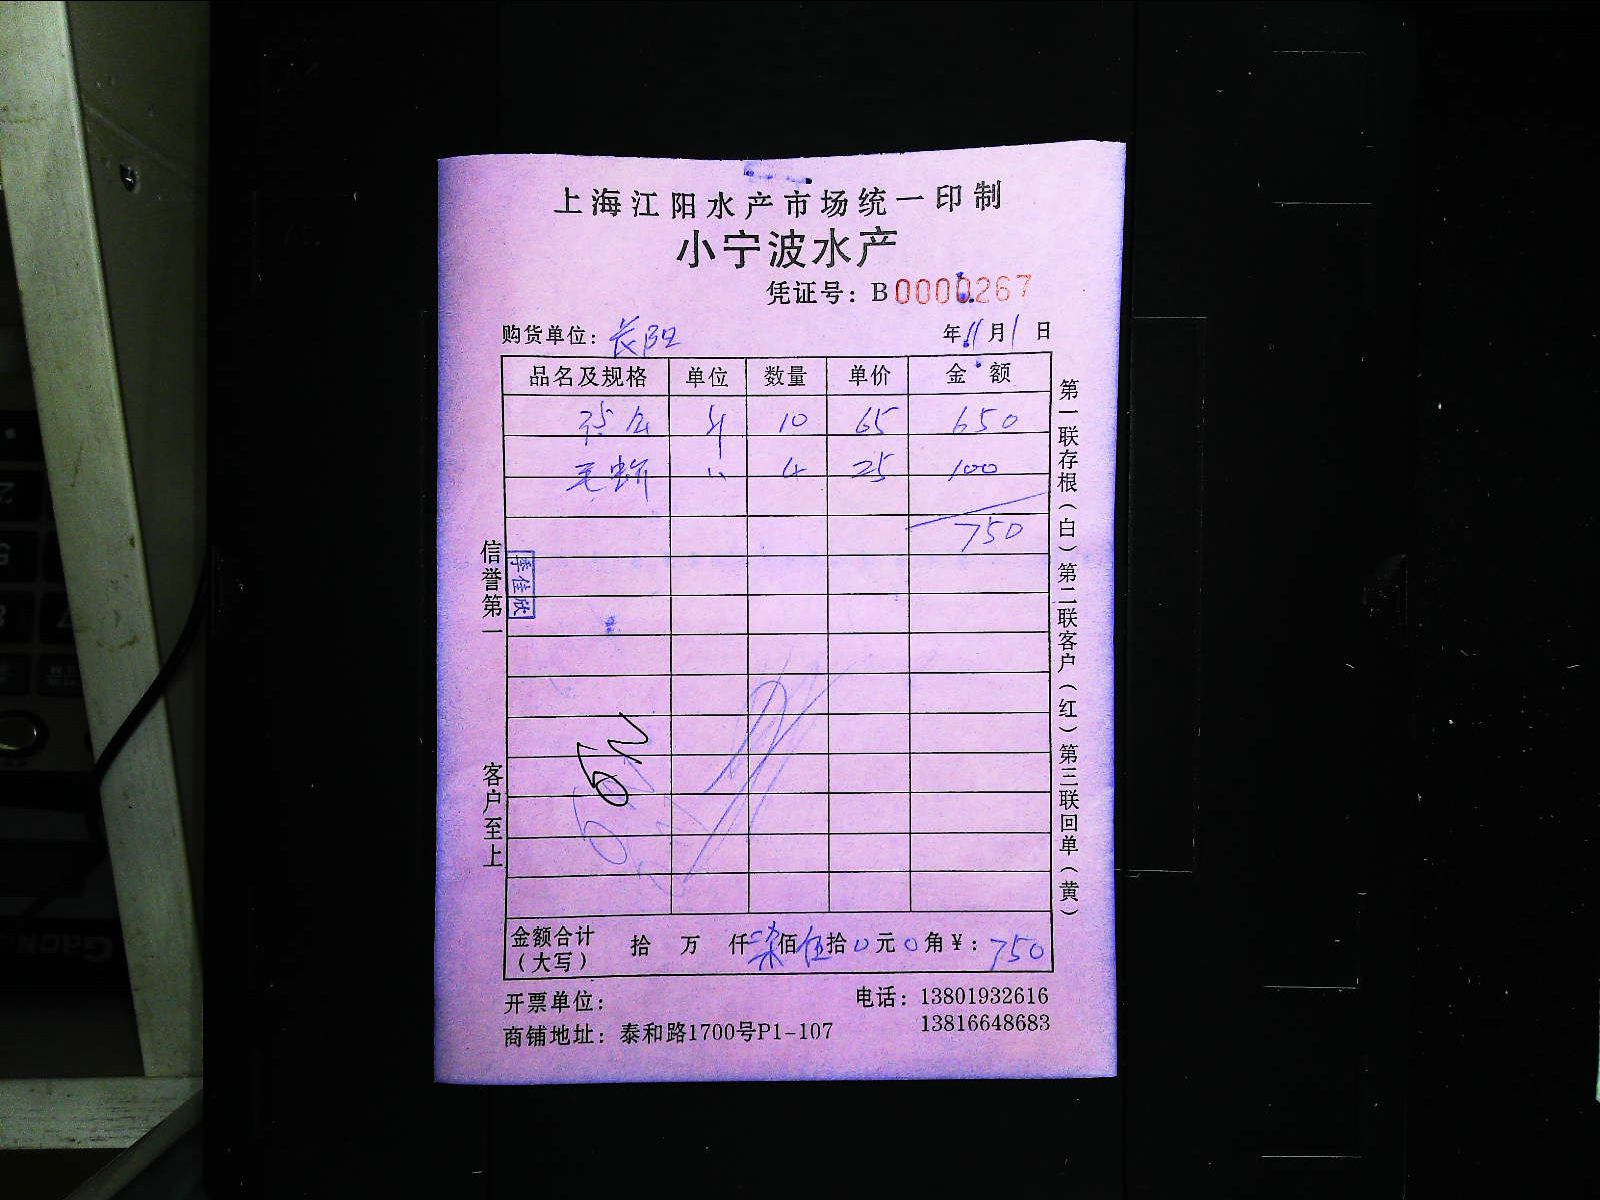 上海江阳水产市场统一印制
小宁波水产
凭证号：B0000267
购货单位：长阳 年11月1日
品名及规格 单位 数量 单价 金额
10 65 650
毛蚶 〃 4 25 100
750
信誉第一
季佳欣
客户至上
第一联存根（白）第二联客户（红）第三联回单（黄）
金额合计（大写） 拾 万 仟柒佰伍拾0元0角¥：750
开票单位： 电话：13801932616
13816648683
商铺地址：泰和路1700号P1-107